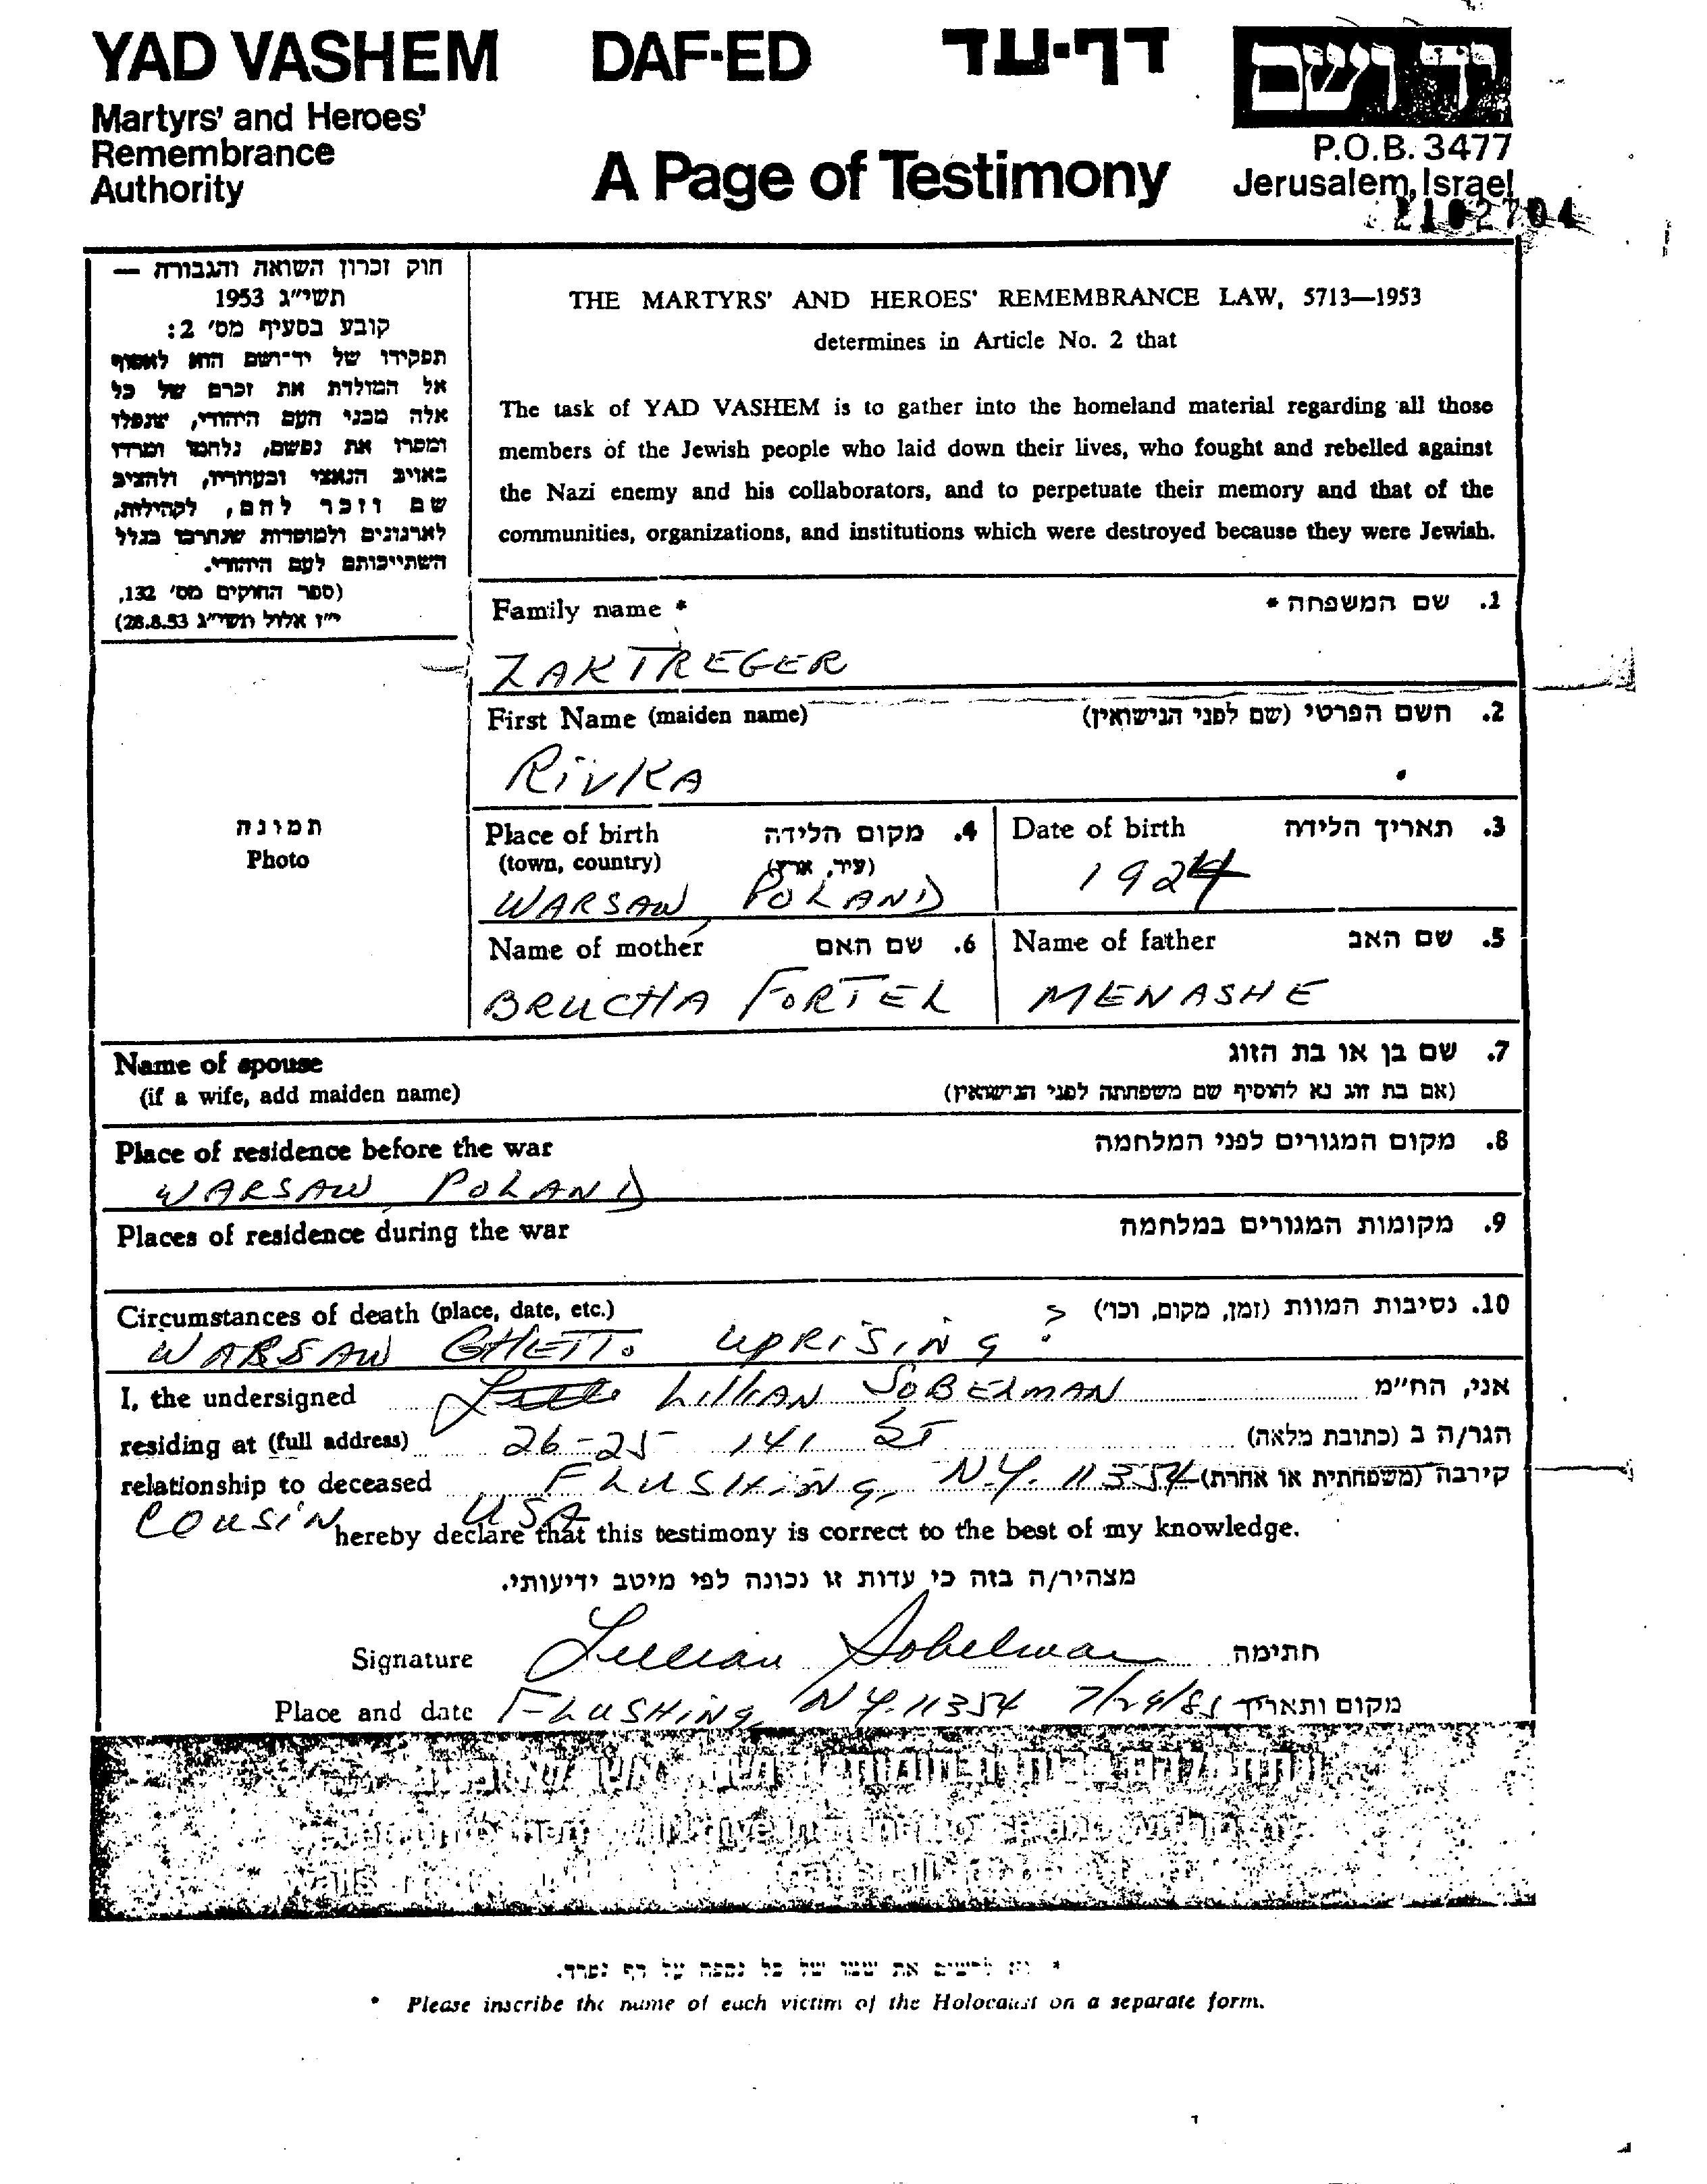 YAD VASHEM
Martyrs' and Heroes'
Remembrance
Authority
DAF-ED
דף-עד
A Page of Testimony
יד ושם
P.O.B. 3477
Jerusalem, Israel
חוק זכרון השואה והגבורה —
תשי״ג 1953
קובע בסעיף מס׳ 2:
תפקידו של יד־ושם הוא לאסוף
אל המולדת את זכרם של כל
אלה מבני העם היהודי, שנפלו
ומסרו את נפשם, נלחמו ומרדו
באויב הנאצי ובעוזריו, ולהציב
שם וזכר להם, לקהילות,
לארגונים ולמוסדות שנחרבו בגלל
השתייכותם לעם היהודי.
(ספר החוקים מס׳ 132,
י״ז אלול תשי״ג 28.8.53)
THE MARTYRS' AND HEROES' REMEMBRANCE LAW, 5713—1953
determines in Article No. 2 that
The task of YAD VASHEM is to gather into the homeland material regarding all those
members of the Jewish people who laid down their lives, who fought and rebelled against
the Nazi enemy and his collaborators, and to perpetuate their memory and that of the
communities, organizations, and institutions which were destroyed because they were Jewish.
תמונה
Photo
Family name * 1. שם המשפחה *
ZAKTREGER
First Name (maiden name) 2. השם הפרטי (שם לפני הנישואין)
RIVKA
Place of birth 4. מקום הלידה
(town, country) (עיר, ארץ)
WARSAW, POLAND
Date of birth 3. תאריך הלידה
1924
Name of mother 6. שם האם
BRUCHA FORTEL
Name of father 5. שם האב
MENASHE
Name of spouse 7. שם בן או בת הזוג
(if a wife, add maiden name) (אם בת זוג נא להוסיף שם משפחתה לפני הנישואין)
Place of residence before the war 8. מקום המגורים לפני המלחמה
WARSAW, POLAND
Places of residence during the war 9. מקומות המגורים במלחמה
Circumstances of death (place, date, etc.) 10. נסיבות המוות (זמן, מקום, וכו׳)
WARSAW GHETTO UPRISING ?
I, the undersigned LILLIAN SOBELMAN אני, הח״מ
residing at (full address) 26-25 141 ST הגר/ה ב (כתובת מלאה)
relationship to deceased FLUSHING, N.Y. 11354 קירבה (משפחתית או אחרת)
COUSIN USA hereby declare that this testimony is correct to the best of my knowledge.
מצהיר/ה בזה כי עדות זו נכונה לפי מיטב ידיעותי.
Signature Lillian Sobelman חתימה
Place and date FLUSHING, NY. 11354 מקום ותאריך
* נא לרשום את שמו של כל נספה על דף נפרד.
* Please inscribe the name of each victim of the Holocaust on a separate form.